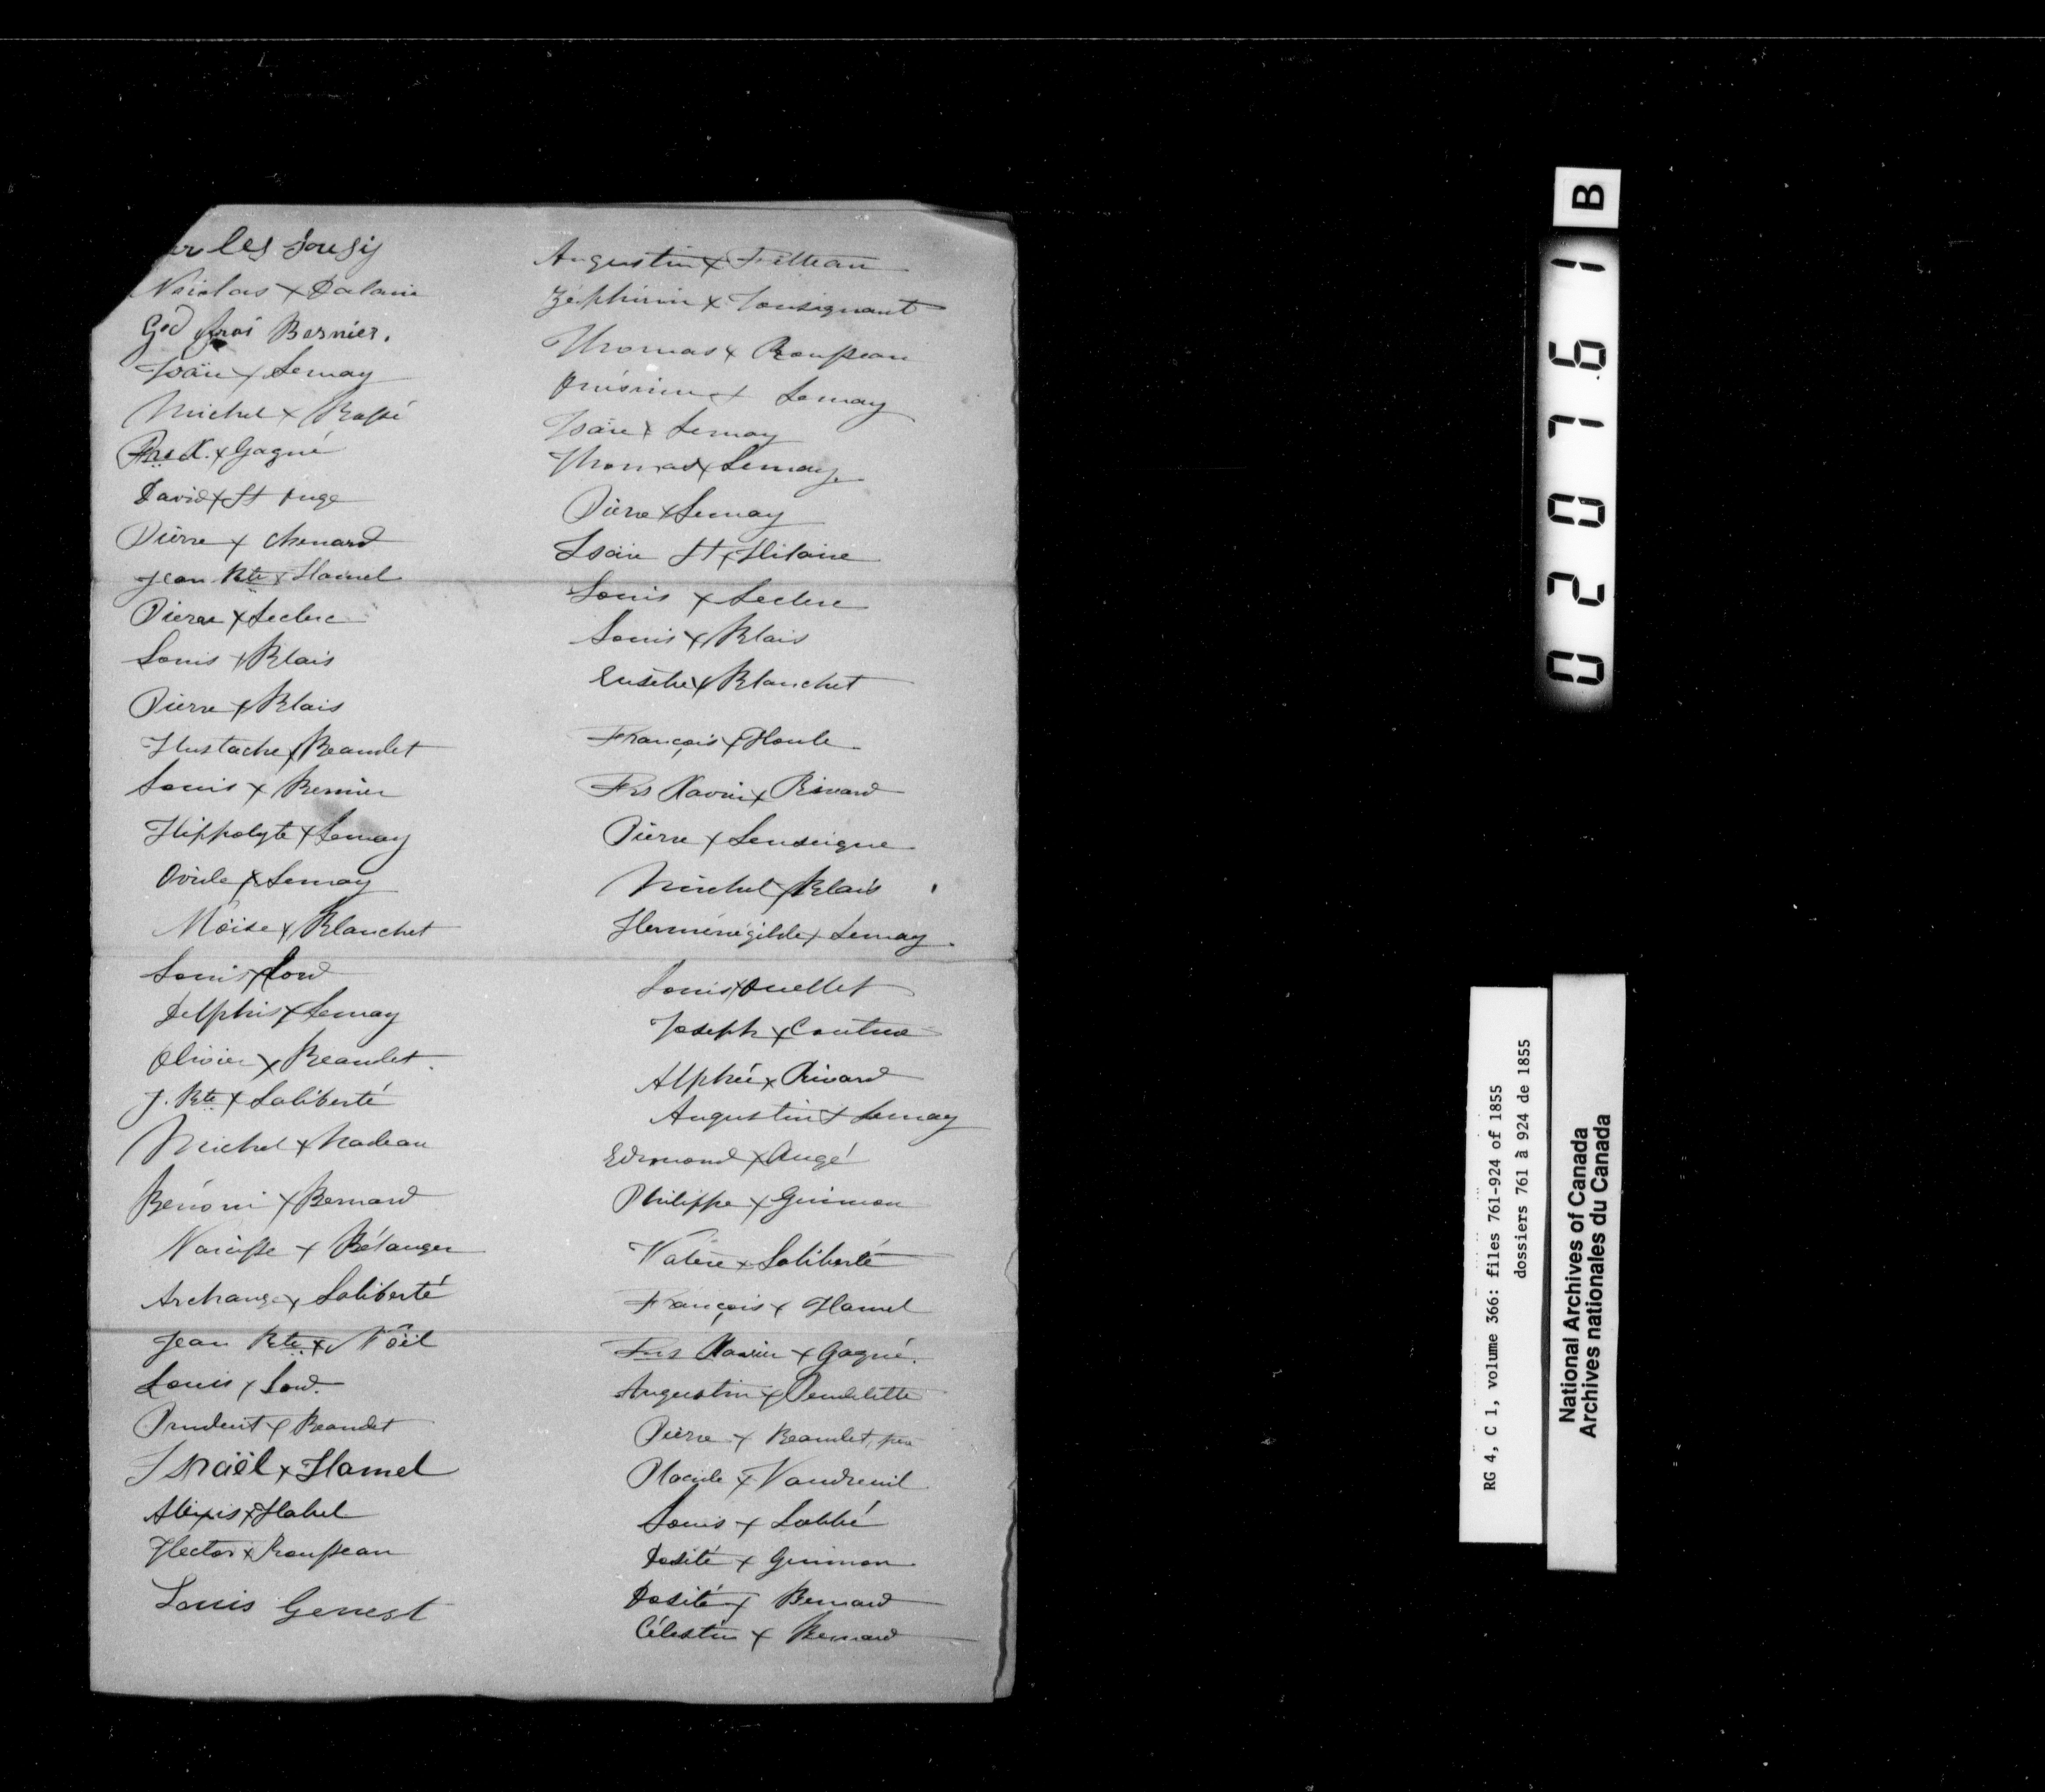 les Sousig
Nicolas x Dalarie
God froi Bernier.
Isäie x Lemay
Michel x Baspé
Frs X. x Gagné
David x St Onge
Pierre x Chenard
Jean Bte x Hamel
Pierre x Leclerc
Louis x Blais
Pierre x Blais
Hustache x Beaudet
Louis x Bernier
Hippolyte x Lemay
Ovide x Lemay
Möise x Blanchet
Louis x Lord
Delphis x Lemay
Olivier x Beaudet.
J. Bte x Laliberté
Michel x Nadeau
Bénoni x Bernard
Narcisse x Bélanger
Archange x Laliberté
Jean Bte. x Nöel
Louis x Lord.
Prudent x Beaudet
Israël x Hamel
Alexis x Hahel
Hector x Rousseau
Louis Genest
Augustin x Filteau
Zéphirin x Tousignant
Thomas x Rousseau
Onésime x Lemay
Isaïe x Lemay
Thomas x Lemay
Pierre x Lemay
Isäie St x Hilaire
Louis x Leclerc
Louis x Blais
Eusèbe x Blanchet
François x Houle
Frs Xavier x Rivard
Pierre x Lenseigne
Michel x Blais
Herménégilde x Lemay.
Louis x Ouellet
Joseph x Couture
Alphée x Rivard
Augustin x Lemay
Edmond x Augé
Philippe x Guimon
Valère x Laliberté
François x Hamel
Frs Xavier x Gagné.
Augustin x
Pierre x Beaudet, père
Placide x Vaudreuil
Louis x Labbé
Dosité x Guimon
Dosité x Bernard
Célestin x Bernard
B
020761
RG 4, C 1, volume 366: files 761-924 of 1855
dossiers 761 à 924 de 1855
National Archives of Canada
Archives nationales du Canada